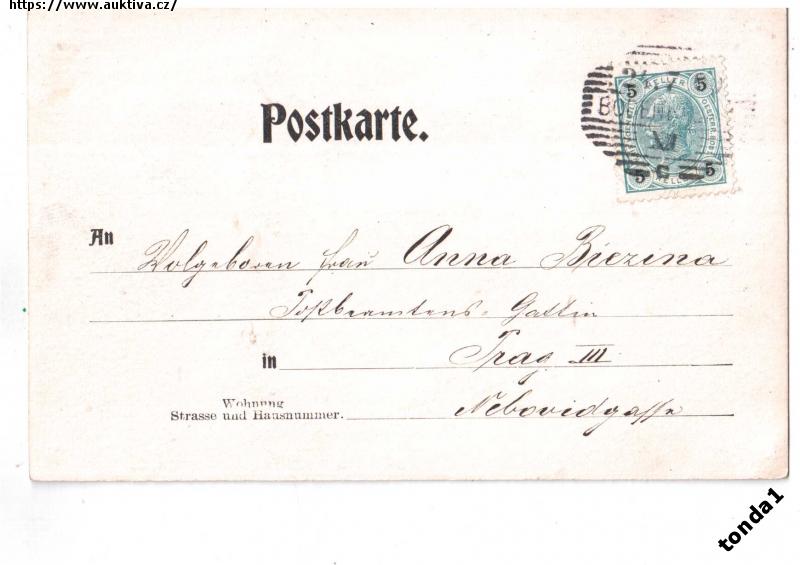 https://www.auktiva.cz/
Postkarte.
5 HELLER 5
5 HELLER 5
An Wolgeboren Frau Anna Biezina
Postbeamtens-Gattin
in Prag III
Wohnung
Strasse und Hausnummer. Nebovidgasse
tonda1